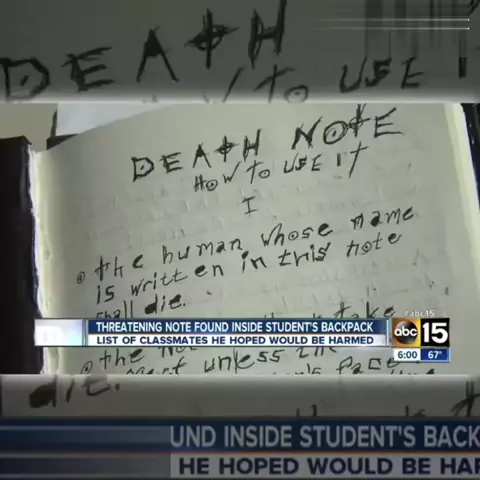 DEATH
TO USE
DEATH NOTE
HOW TO USE IT
I
the human whose name
is written in this note
shall die.
take
the
unless
#abc15
THREATENING NOTE FOUND INSIDE STUDENT'S BACKPACK
LIST OF CLASSMATES HE HOPED WOULD BE HARMED
abc 15
6:00 67°
die.
UND INSIDE STUDENT'S BACK
HE HOPED WOULD BE HAR